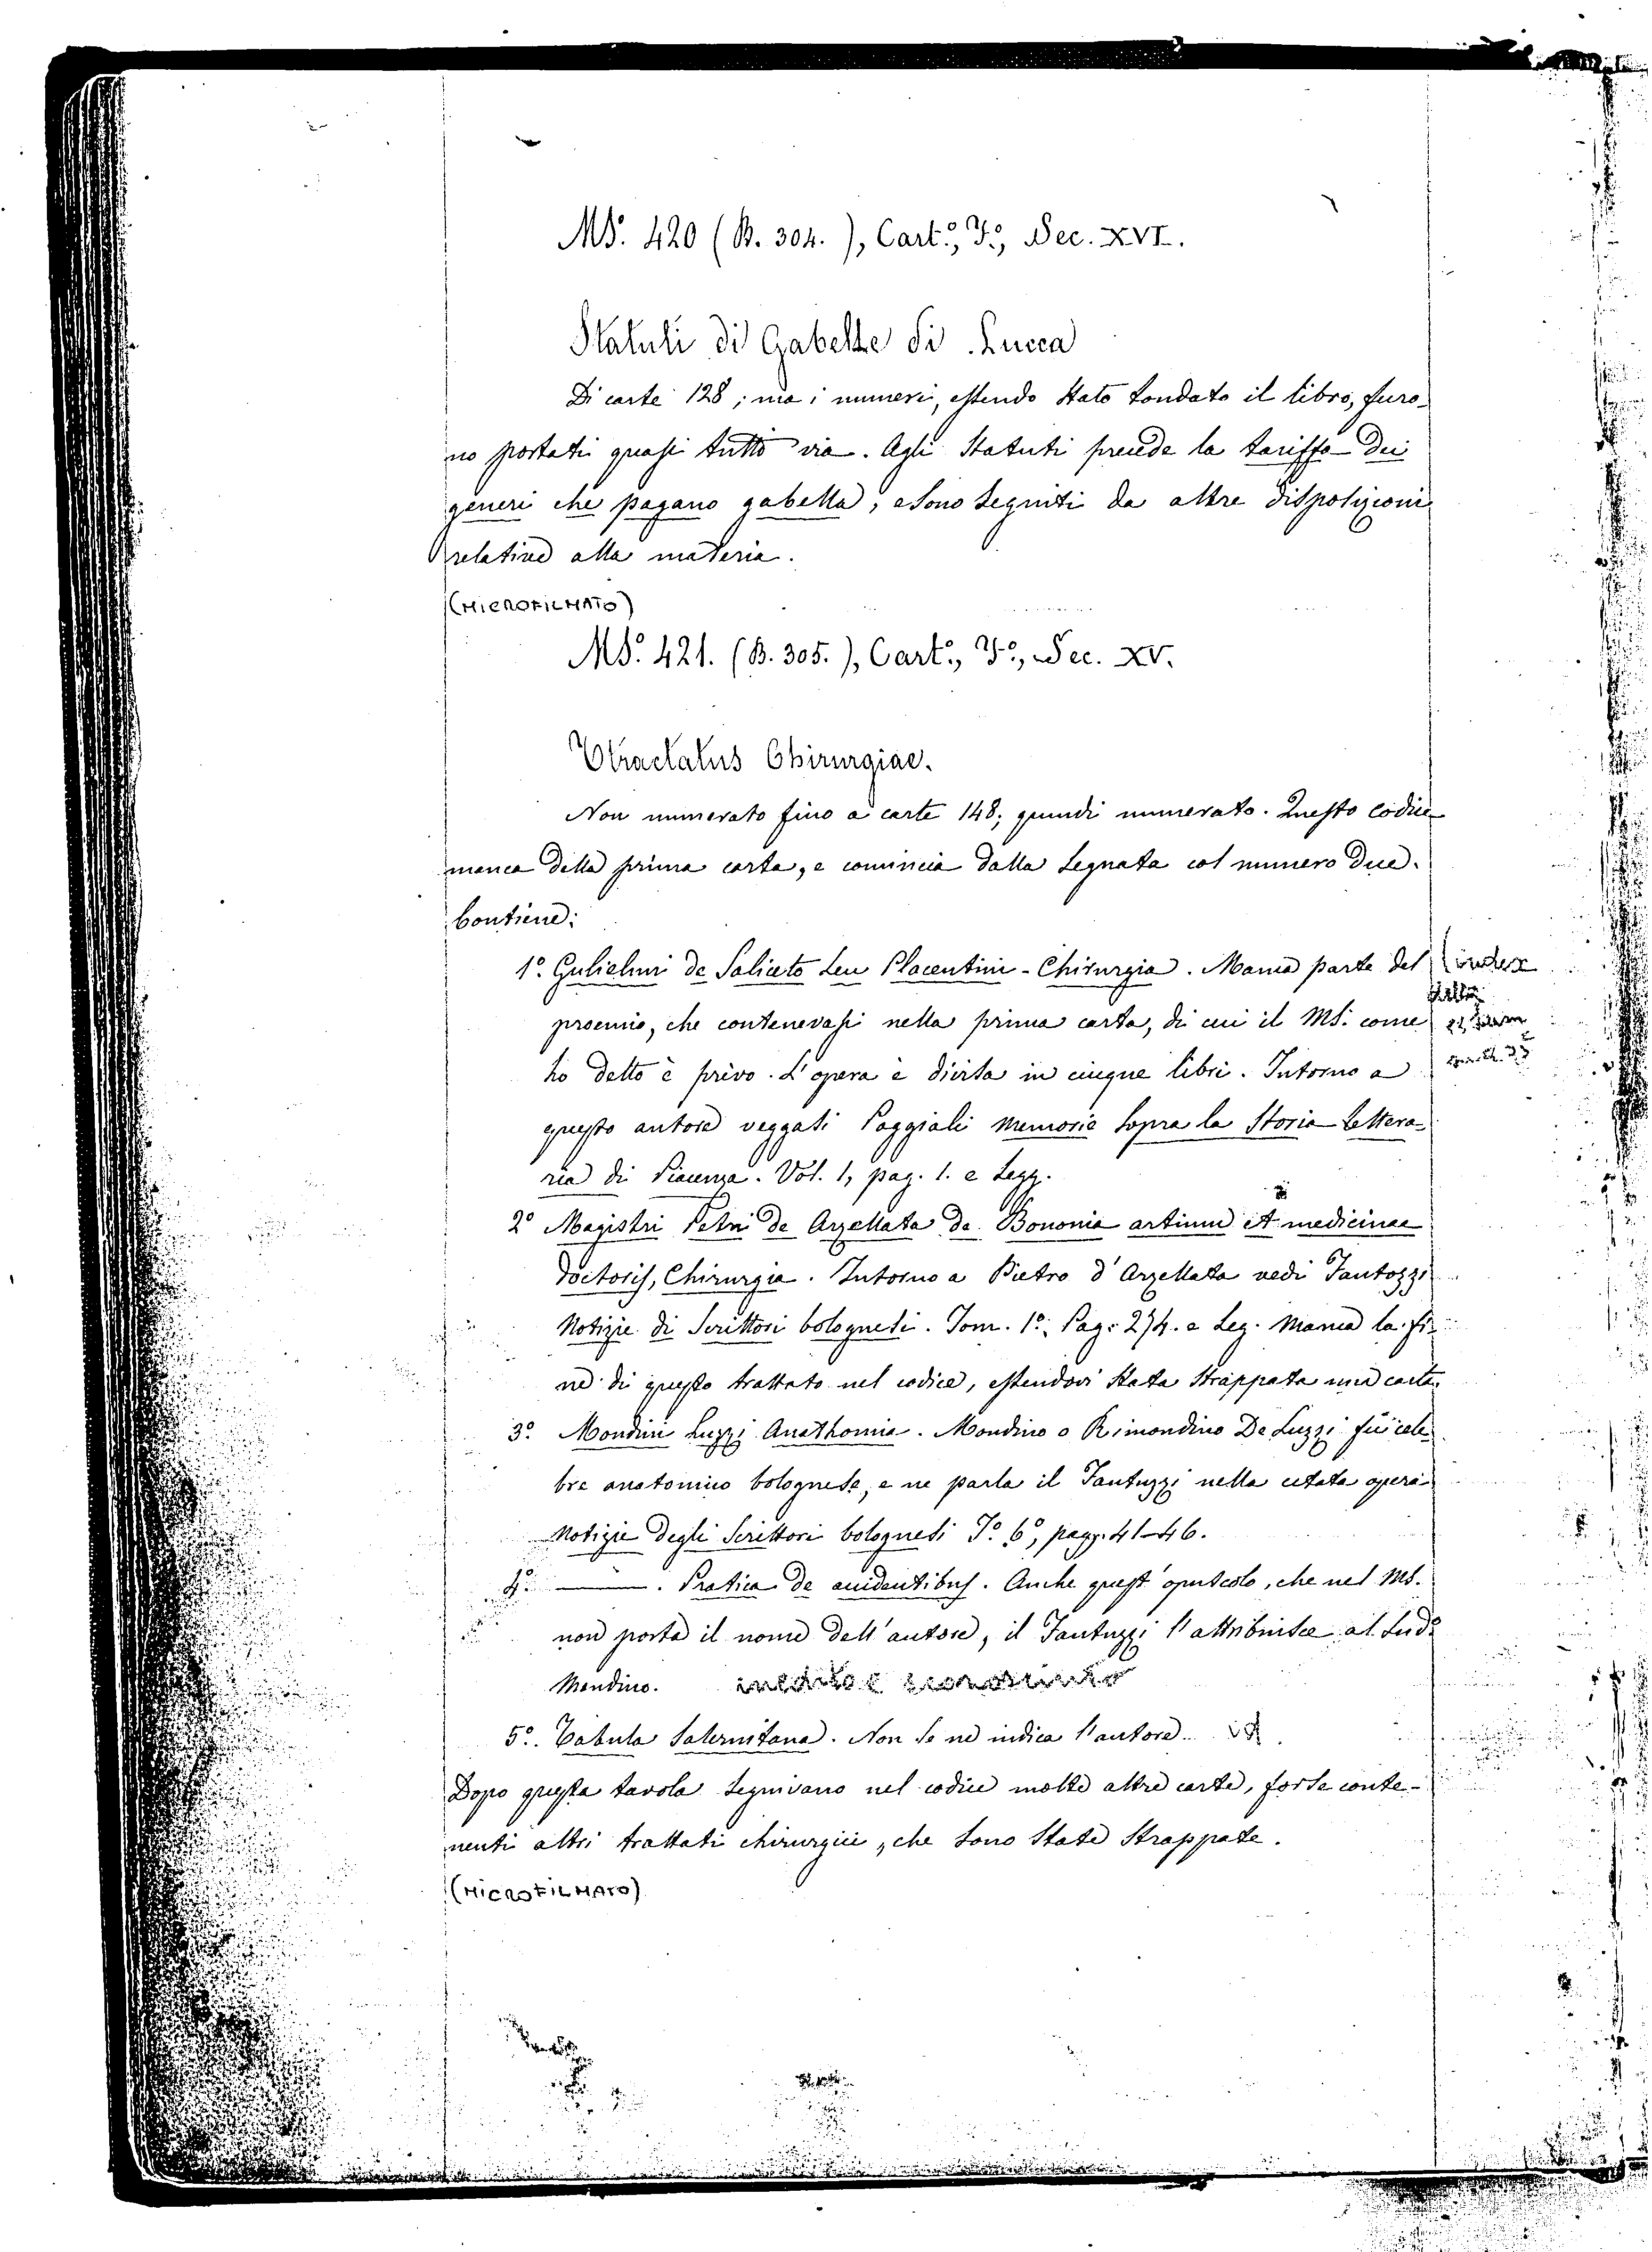 MS. 420 (B. 304.), Cart.º, Fº, Sec. XVI.
Statuti di Gabelle di Lucca
Di carte 128; ma i numeri, essendo stato tondato il libro, furo-
no portati quasi tutti via. Agli Statuti precede la tariffa dei
generi che pagano gabella, e sono seguiti da altre disposizioni
relative alla materia.
(MICROFILMATO)
MS. 421. (B. 305.), Cart.º, Fº, Sec. XV.
Tractatus Chirurgiae.
Non numerato fino a carte 148; quindi numerato. Questo codice
manca della prima carta, e comincia dalla segnata col numero due.
Contiene:
1º. Gulielmi de Saliceto seu Placentini - Chirurgia. Manca parte del
proemio, che contenevasi nella prima carta, di cui il MS. come
ho detto è privo. L'opera è divisa in cinque libri. Intorno a
questo autore veggasi Poggiali Memorie sopra la Storia Lettera-
ria di Piacenza. Vol. 1, pag. 1. e segg.
2º Magistri Petri de Arzellata de Bononia artium et medicinae
doctoris, Chirurgia. Intorno a Pietro d'Arzellata vedi Fantozzi
Notizie di Scrittori bolognesi. Tom. 1º, Pag. 274. e seg. Manca la fi-
ne di questo trattato nel codice, essendovi stata strappata una carta.
3º. Mondini Luzzi Anathomia. Mondino o Rimondino De Luzzi fu cele-
bre anatomico bolognese, e ne parla il Fantuzzi nella citata opera
Notizie degli Scrittori bolognesi Tº. 6º, pagg. 41-46.
4º. ——. Pratica de accidentibus. Anche quest'opuscolo, che nel MS.
non porta il nome dell'autore, il Fantuzzi l'attribuisce al sudº
Mondino.
5º. Tabula Salernitana. Non se ne indica l'autore.
Dopo questa tavola seguivano nel codice molte altre carte, forse conte-
nenti altri trattati chirurgici, che sono state strappate.
(MICROFILMATO)